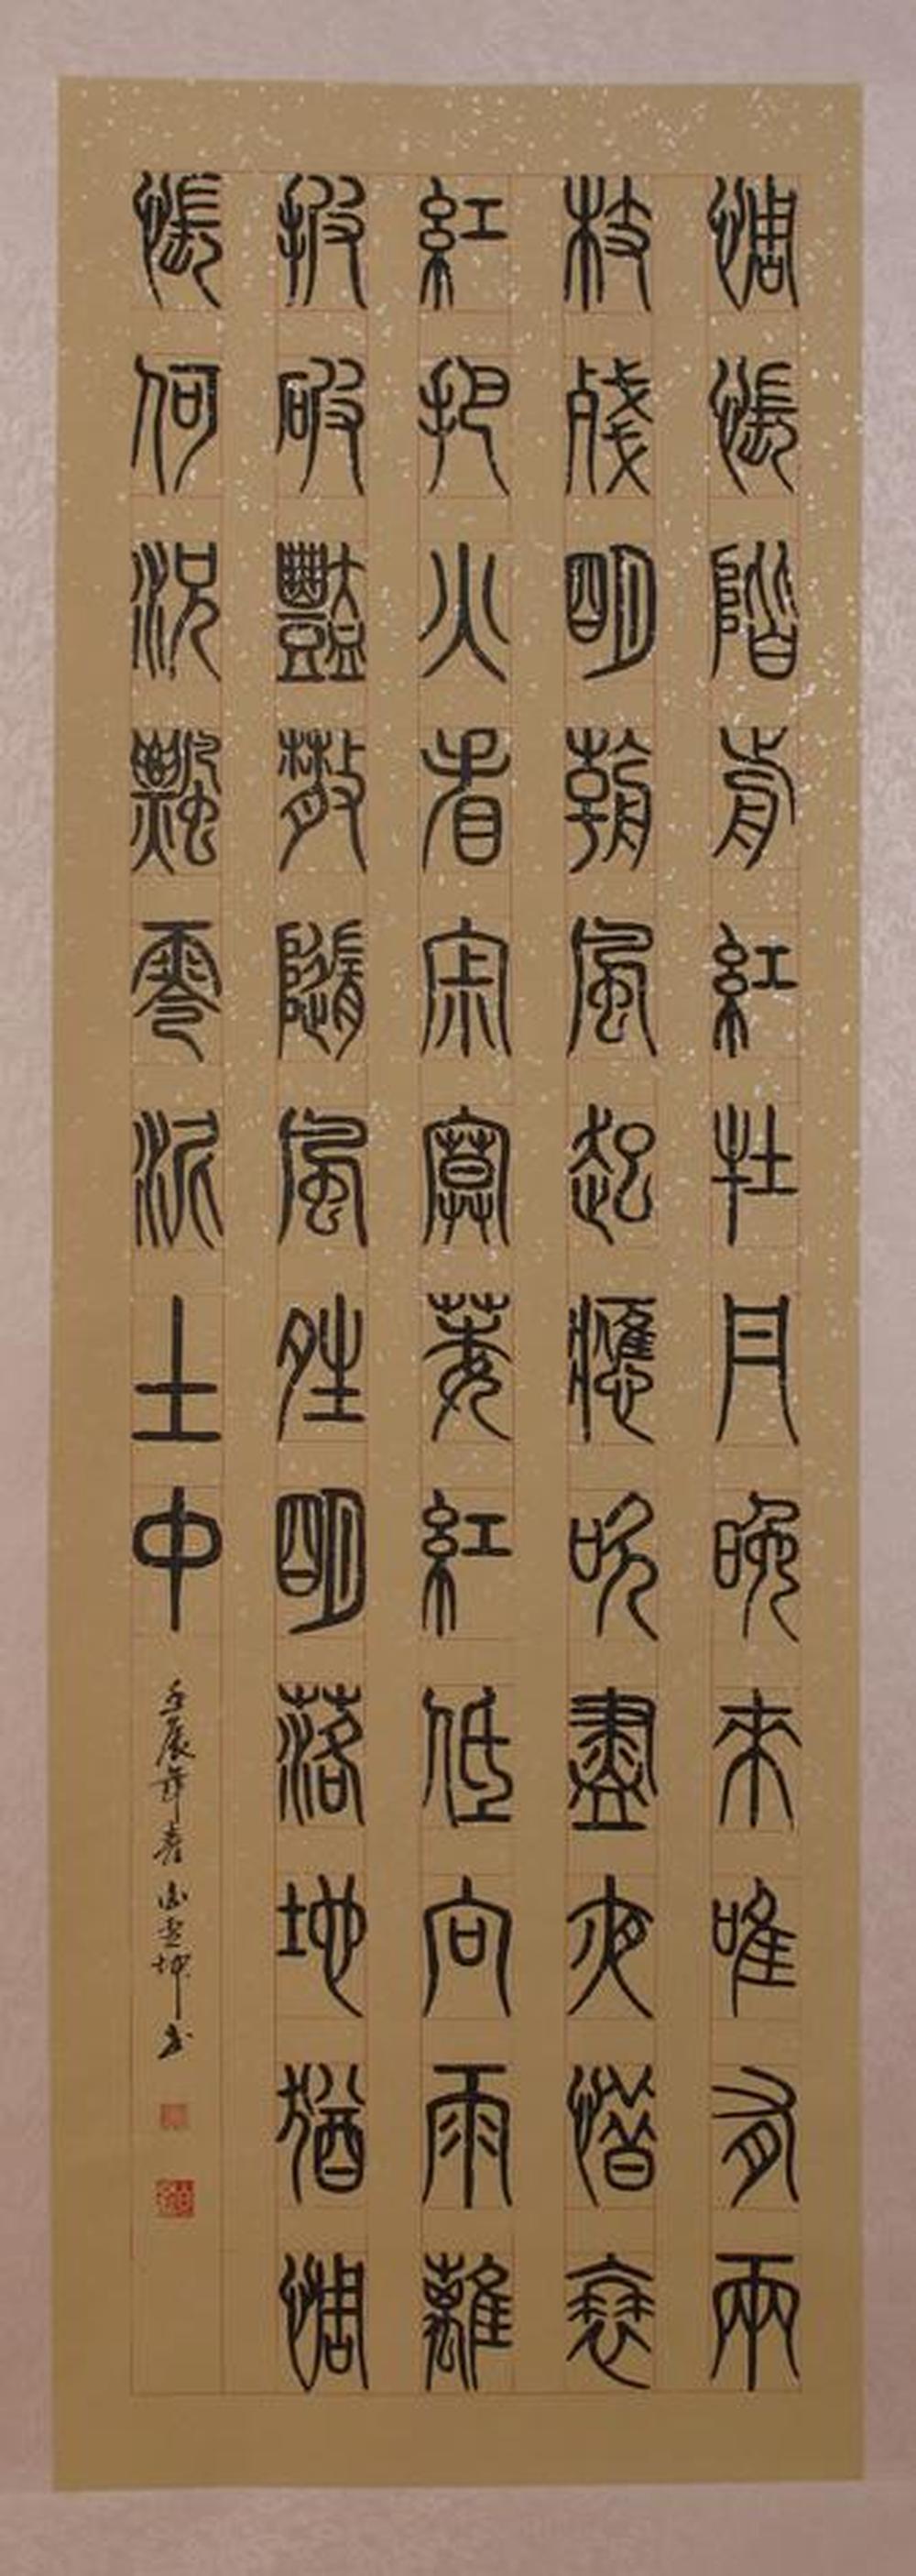 惆悵階前紅牡丹晚來唯有兩
枝殘明朝風起應吹盡夜惜衰
紅把火看寂寞萎紅低向雨離
披破豔散隨風晴明落地猶惆
悵何況飄零泥土中
壬辰年春 坤書